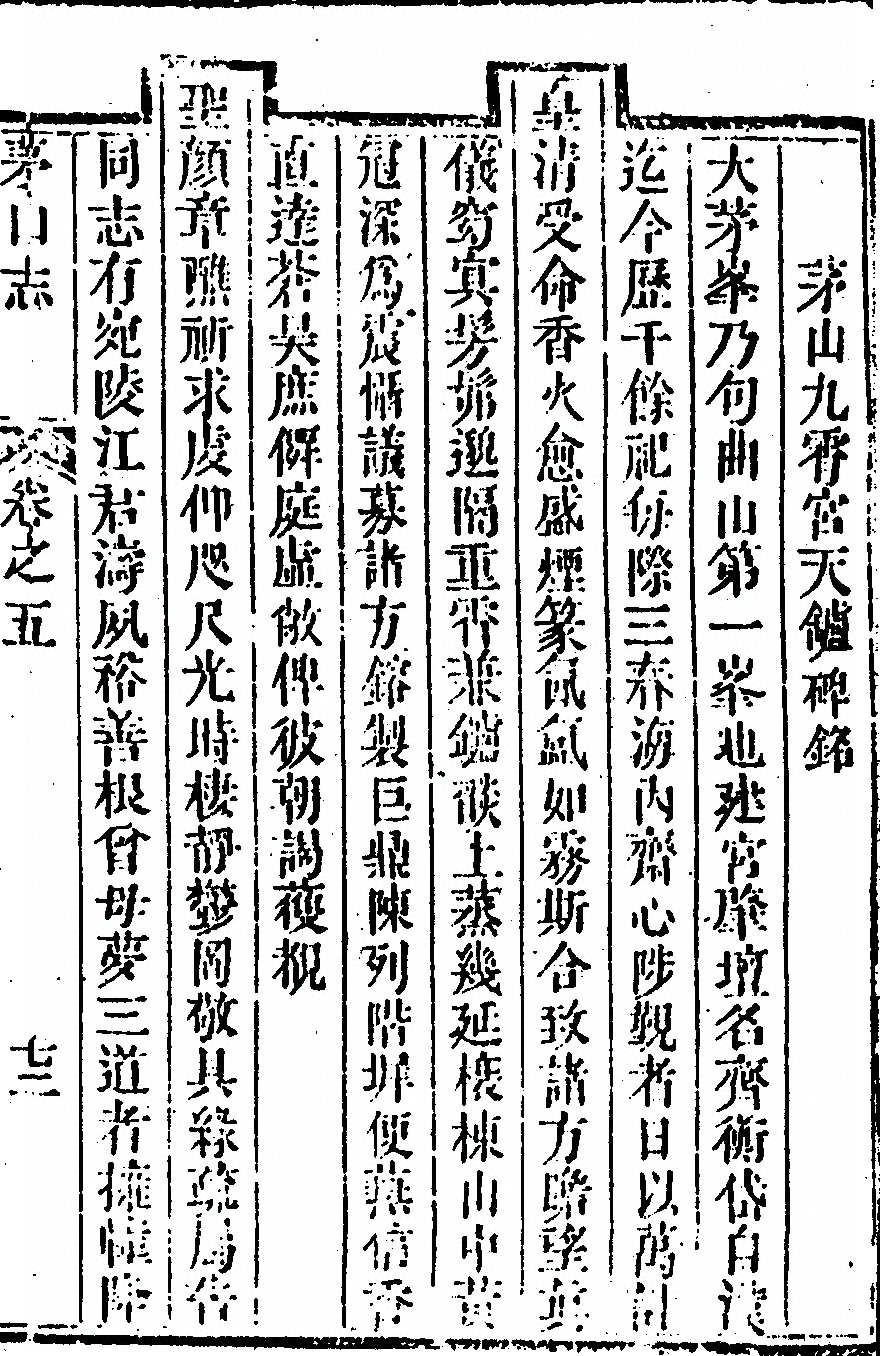 茅山九霄宮天鑪碑銘
大茅峯乃句曲山第一峯也建宮肇壇名齊衡岱自漢
迄今歷千餘祀每際三春海內齋心陟覲者日以萬計
皇清受命香火愈盛煙篆氤氳如霧斯合致諸方瞻望
儀窈冥髣髴邈隔重霄兼鑪燄上蒸幾延榱棟山中黃
冠深為震慴議募諸方鎔製巨鼎陳列階墀便爇信香
直達蒼昊庶僻庭虛敞俾彼朝謁獲覩
聖顏章醮祈求虔仰咫尺光時棲靜鬱岡敬具綠疏屬告
同志有宛陵江君濤夙裕善根曾母夢三道者擁幢降
茅山志
卷之五
七二